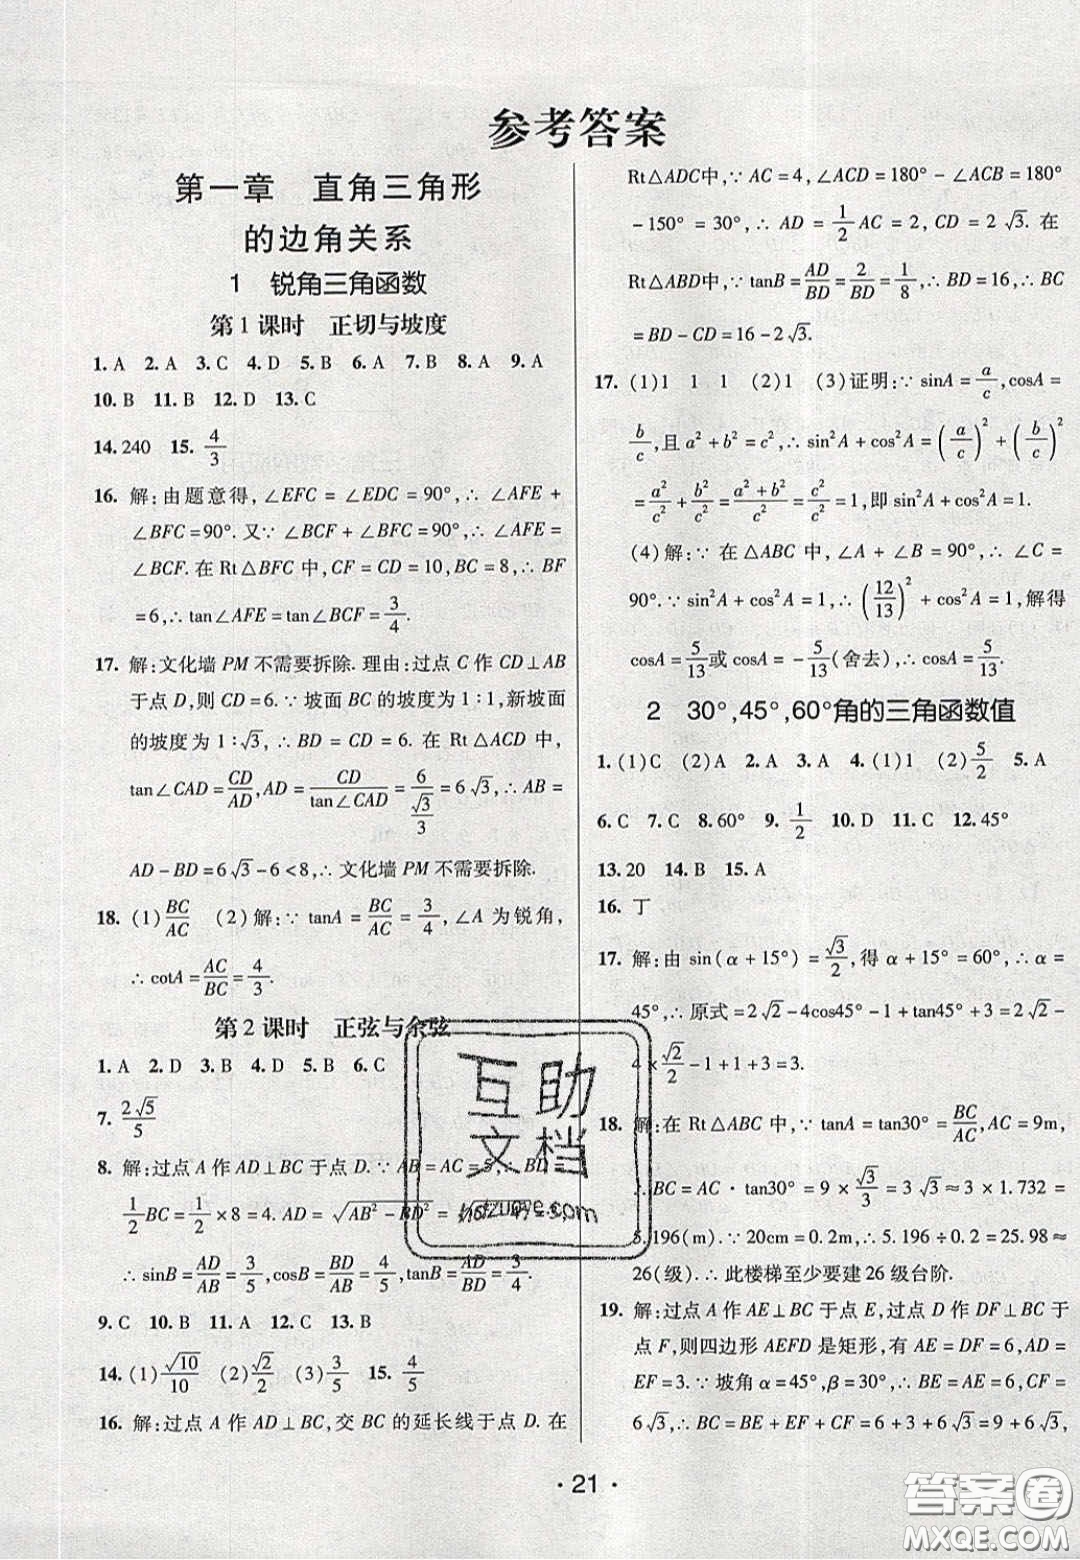 参考答案
第一章 直角三角形
的边角关系
1 锐角三角函数
第1课时 正切与坡度
1. A 2. A 3. C 4. D 5. B 6. A 7. B 8. A 9. A
10. B 11. B 12. D 13. C
14. 240 15. 4/3
16. 解:由题意得,∠EFC = ∠EDC = 90°,∴ ∠AFE +
∠BFC = 90°. 又∵ ∠BCF + ∠BFC = 90°,∴ ∠AFE =
∠BCF. 在 Rt△BFC 中,CF = CD = 10,BC = 8,∴ BF
= 6,∴ tan∠AFE = tan∠BCF = 3/4.
17. 解:文化墙 PM 不需要拆除. 理由:过点 C 作 CD⊥AB
于点 D,则 CD = 6. ∵ 坡面 BC 的坡度为 1∶1,新坡面
的坡度为 1∶√3,∴ BD = CD = 6. 在 Rt△ACD 中,
tan∠CAD = CD/AD,AD = CD/tan∠CAD = 6/(√3/3) = 6√3,∴ AB =
AD − BD = 6√3 − 6 < 8,∴ 文化墙 PM 不需要拆除.
18. (1) BC/AC (2)解:∵ tanA = BC/AC = 3/4,∠A 为锐角,
∴ cotA = AC/BC = 4/3.
第2课时 正弦与余弦
1. A 2. D 3. B 4. D 5. B 6. C
7. 2√5/5
8. 解:过点 A 作 AD⊥BC 于点 D. ∵ AB = AC = 5,∴ BD =
1/2 BC = 1/2 × 8 = 4. AD = √(AB² − BD²) =
∴ sinB = AD/AB = 3/5,cosB = BD/AB = 4/5,tanB = AD/BD = 3/4.
9. C 10. B 11. D 12. C 13. B
14. (1) √10/10 (2) √2/2 (3) 3/5 15. 4/5
16. 解:过点 A 作 AD⊥BC,交 BC 的延长线于点 D. 在
Rt△ADC中,∵ AC = 4,∠ACD = 180° − ∠ACB = 180°
−150° = 30°,∴ AD = 1/2 AC = 2,CD = 2√3. 在
Rt△ABD中,∵ tanB = AD/BD = 2/BD = 1/8,∴ BD = 16,∴ BC
= BD − CD = 16 − 2√3.
17. (1)1 1 1 (2)1 (3)证明:∵ sinA = a/c,cosA =
b/c,且 a² + b² = c²,∴ sin²A + cos²A = (a/c)² + (b/c)²
= a²/c² + b²/c² = (a² + b²)/c² = c²/c² = 1,即 sin²A + cos²A = 1.
(4)解:∵ 在△ABC 中,∠A + ∠B = 90°,∴ ∠C =
90°. ∵ sin²A + cos²A = 1,∴ (12/13)² + cos²A = 1,解得
cosA = 5/13 或 cosA = −5/13(舍去),∴ cosA = 5/13.
2 30°,45°,60°角的三角函数值
1. (1)C (2)A 2. A 3. A 4. (1)1 (2) 5/2 5. A
6. C 7. C 8. 60° 9. 1/2 10. D 11. C 12. 45°
13. 20 14. B 15. A
16. 丁
17. 解:由 sin(α + 15°) = √3/2,得 α + 15° = 60°,∴ α =
45°,∴ 原式 = 2√2 − 4cos45° − 1 + tan45° + 3 = 2√2 −
4 × √2/2 − 1 + 1 + 3 = 3.
18. 解:在 Rt△ABC 中,∵ tanA = tan30° = BC/AC,AC = 9m,
∴ BC = AC · tan30° = 9 × √3/3 = 3√3 ≈ 3 × 1.732 =
5.196(m). ∵ 20cm = 0.2m,∴ 5.196 ÷ 0.2 = 25.98 ≈
26(级). ∴ 此楼梯至少要建 26 级台阶.
19. 解:过点 A 作 AE⊥BC 于点 E,过点 D 作 DF⊥BC 于
点 F,则四边形 AEFD 是矩形,有 AE = DF = 6,AD =
EF = 3. ∵ 坡角 α = 45°,β = 30°,∴ BE = AE = 6,CF =
6√3,∴ BC = BE + EF + CF = 6 + 3 + 6√3 = 9 + 6√3,
互助
文档
· 21 ·
答案圈
MXQE.COM